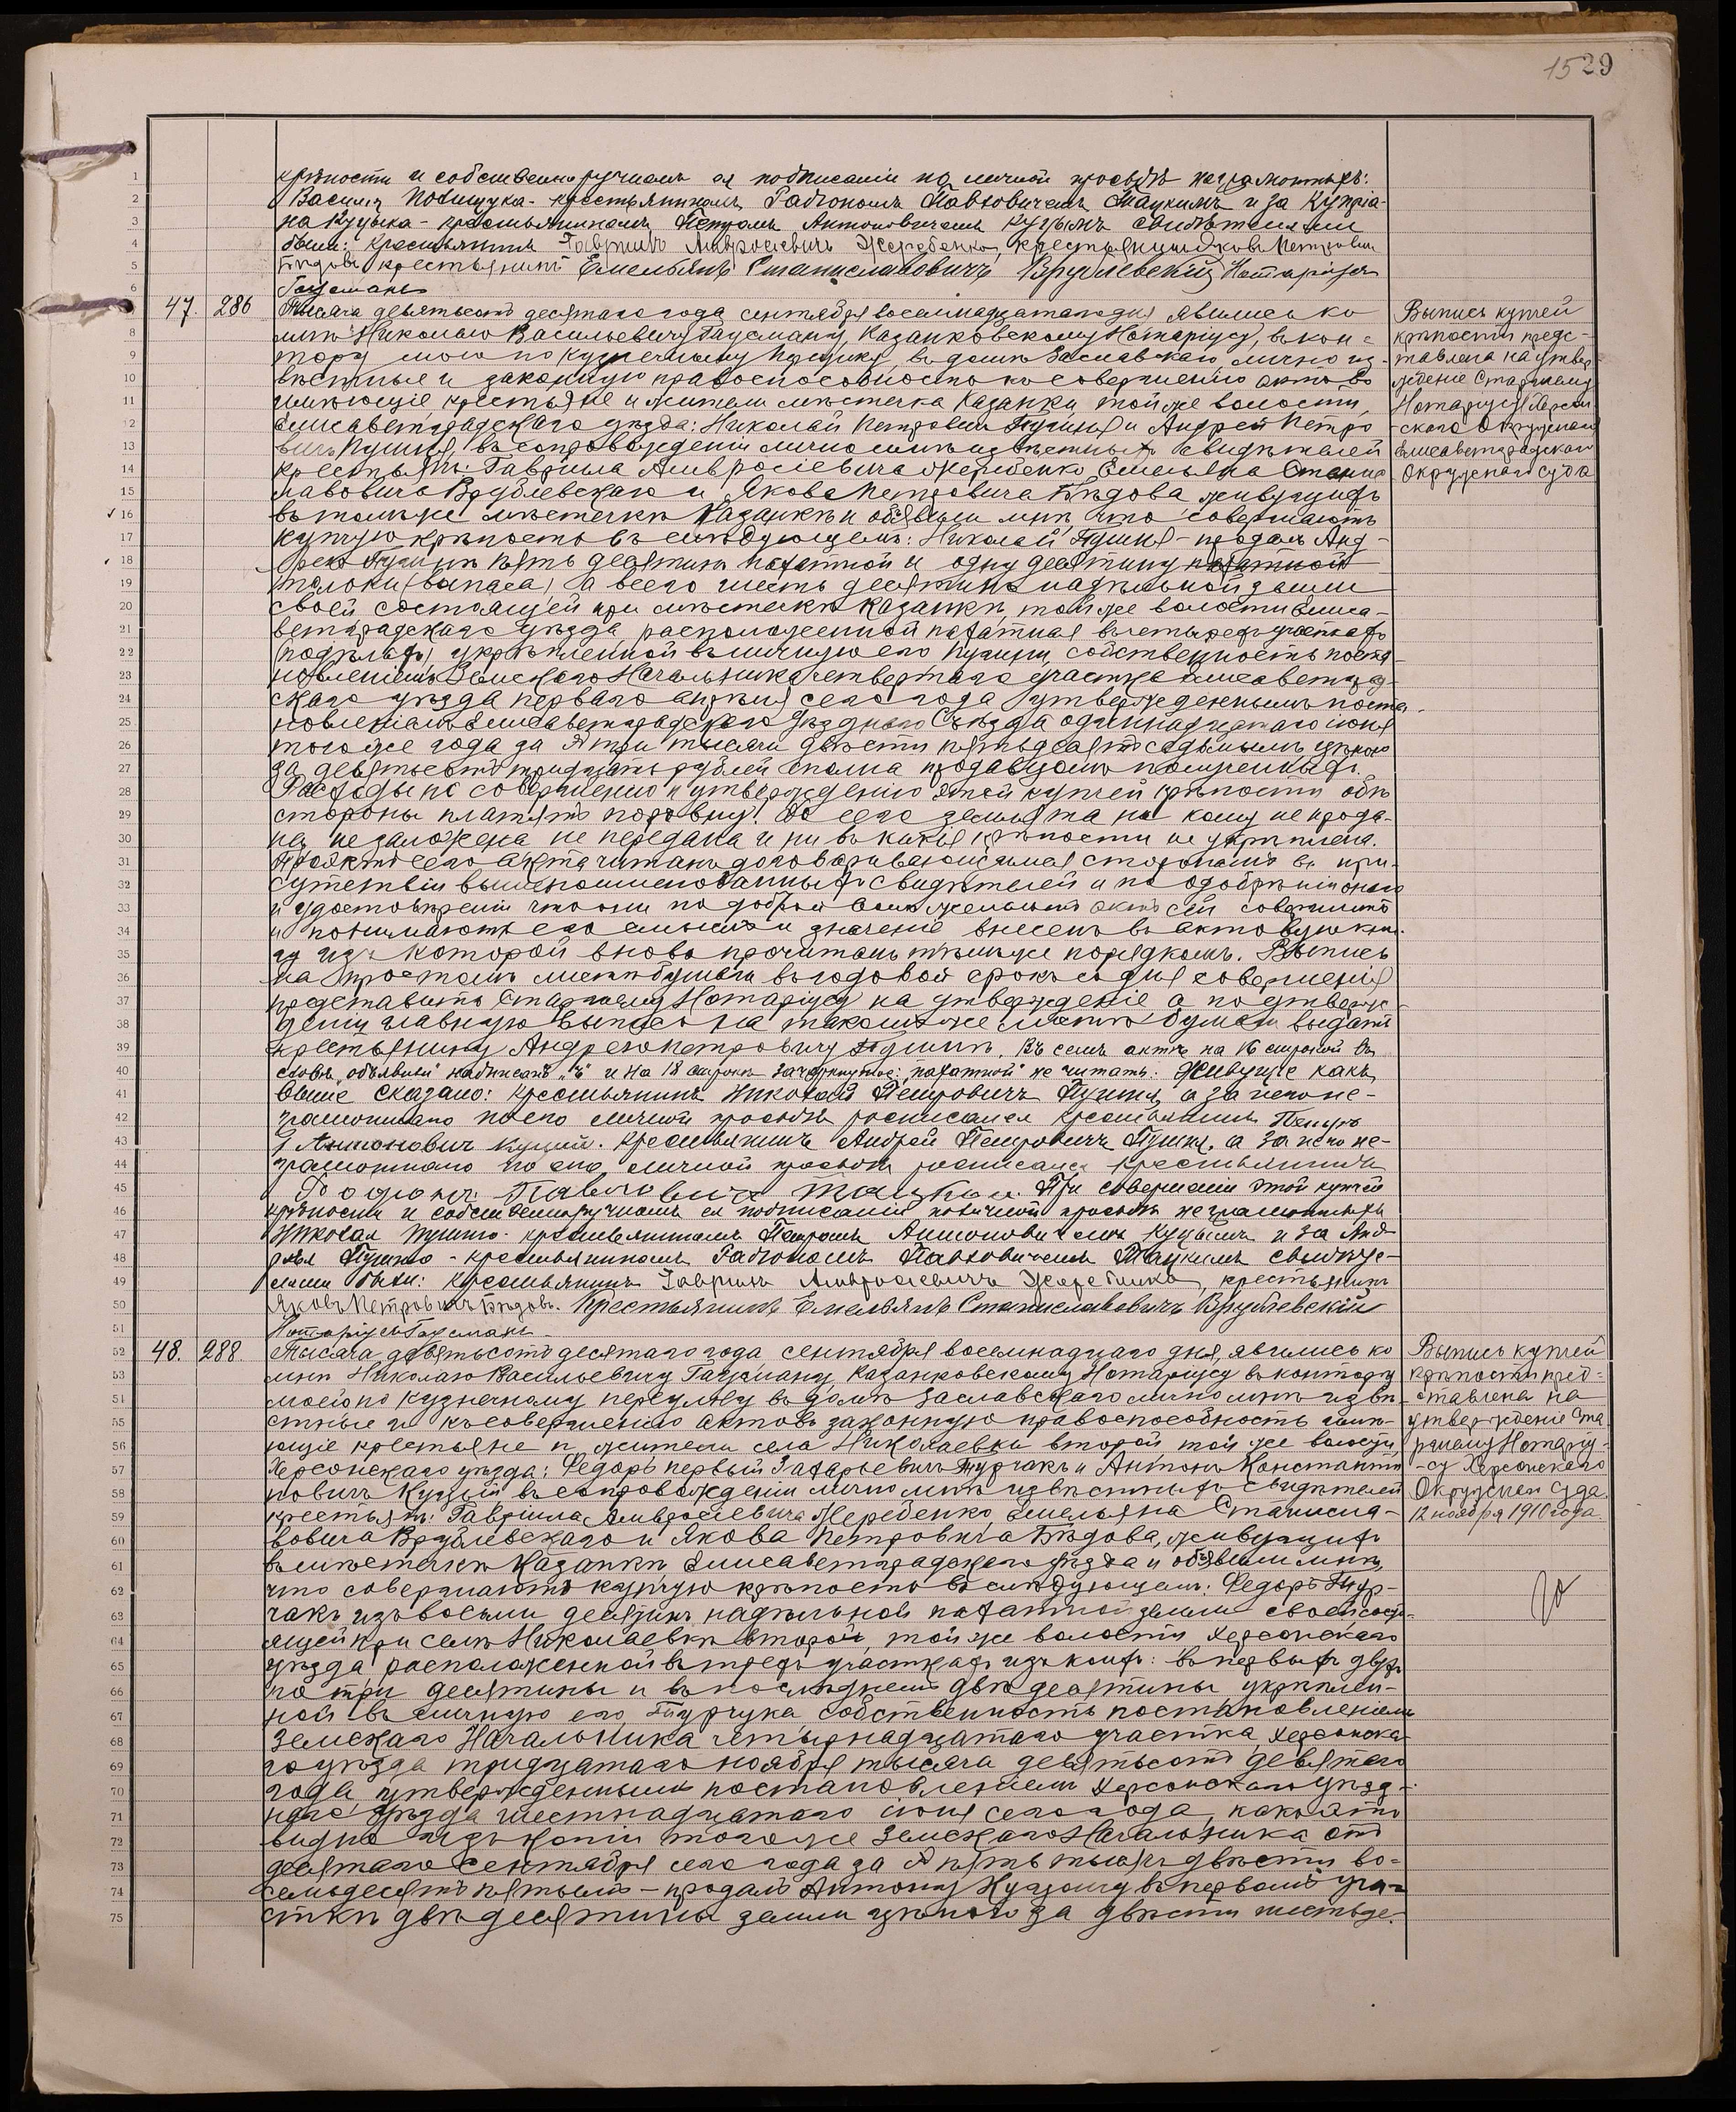 1529
крѣпости и собственноручномъ ея подписаніи по личной просьбѣ неграмотныхъ:
Василія Полищука - крестьяниномъ Радіономъ Павловичемъ Тацкимъ и за Купріа-
на Куцыка - крестьяниномъ Петромъ Антоновичемъ Куцымъ свидѣтелями
были: Крестьянинъ Гавріилъ Амвросіевичъ Жеребенко, крестьянинъ Яковъ Петровичъ
Бѣдовъ крестьянинъ Емельянъ Станиславовичъ Врублевскій Нотаріусъ
Гаусманъ
47. 286 Тысяча девятьсотъ десятаго года сентября восемнадцатаго дня явились ко
мнѣ Николаю Васильевичу Гаусману, Казанковскому Нотаріусу, въ кон-
тору мою по Кузнечному переулку, въ домѣ Заславскаго лично из-
вѣстные и законную правоспособность къ совершенію актовъ
имѣющіе, крестьяне и жители мѣстечка Казанки, той же волости,
Елисаветградскаго уѣзда: Николай Петровичъ Пушня и Андрей Петро
вичъ Пушня, въ сопровожденіи лично мнѣ извѣстныхъ свидѣтелей
крестьянъ: Гавріила Амвросіевича Жеребенко, Емельяна Станис
лавовича Врублевскаго и Якова Петровича Бѣдова, живущихъ
въ томъ же мѣстечкѣ Казанкѣ и объявили мнѣ, что совершаютъ
купчую крѣпость въ слѣдующемъ: Николай Пушня - продалъ Анд-
рею Пушнѣ пять десятинъ пахатной и одну десятину пахатной
толоки (выпаса) а всего шесть десятинъ надѣльной земли
своей состоящей при мѣстечкѣ Казанкѣ, той же волости Елиса-
ветградскаго уѣзда, расположенной пахатная въ четырехъ участкахъ
укрѣпленной въ личную его Пушни, собственность поста-
новленіемъ Земскаго Начальника четвертаго участка Елисаветград-
скаго уѣзда перваго апрѣля сего года утвержденнымъ поста-
новленіемъ Елисаветградскаго Уѣзднаго Съѣзда одиннадцатаго іюня
того же года за № три тысячи двѣсти пятьдесятъ седьмымъ цѣною
за девятьсотъ тридцать рублей сполна продавцомъ полученныхъ.
Расходы по совершенію и утвержденію этой купчей крѣпости обѣ
стороны платятъ поровну. До сего земля та ни кому не прода-
на, не заложена не передана и ни въ какія крѣпости не укрѣплена.
Проектъ сего акта читанъ договаривающимся сторонамъ въ при-
сутствіи вышепоименованныхъ свидѣтелей и по одобреніи онаго
и удостовѣреніи что они по доброй волѣ желаютъ актъ сей совершить
и понимаютъ его смыслъ и значеніе внесенъ въ актовую кни-
гу изъ которой вновь прочитанъ тѣмъ же порядкомъ. Выпись
на простомъ листѣ бумаги въ годовой срокъ со дня совершенія
представить Старшему Нотаріусу на утвержденіе а по утверж-
деніи главную выпись на такомъ же листѣ бумаги выдать
крестьянину Андрею Петровичу Пушнѣ. Въ семъ актѣ на 16 строкѣ въ
словѣ „объявили" надписанъ „ъ" и на 18 строкѣ зачеркнутое: „пахатной" не читать: Живущіе какъ
выше сказано: Крестьянинъ Николай Петровичъ Пушня, а за него не-
грамотнаго по его личной просьбѣ росписался крестьянинъ Петръ
Антоновичъ Куцый. Крестьянинъ Андрей Петровичъ Пушня, а за него не-
грамотнаго по его личной просьбѣ росписался крестьянинъ
Родіонъ Павловичъ Тацкій. При совершеніи этой купчей
крѣпости и собственноручномъ ея подписаніи по личной просьбѣ неграмотныхъ
Николая Пушню - крестьяниномъ Петромъ Антоновичемъ Куцымъ и за Анд-
рея Пушню - крестьяниномъ Радіономъ Павловичемъ Тацкимъ свидѣте-
лями были: Крестьянинъ Гавріилъ Амвросіевичъ Жеребенко, крестьянинъ
Яковъ Петровичъ Бѣдовъ. Крестьянинъ Емельянъ Станиславовичъ Врублевскій
Нотаріусъ Гаусманъ
Выпись купчей
крѣпости предс-
тавлена на утвер
жденіе Старшему
Нотаріусу Херсон
-скаго Окружнаго
Елисаветградскаго
Окружнаго Суда
48. 288. Тысяча девятьсотъ десятаго года сентября восемнадцаго дня, явились ко
мнѣ Николаю Васильевичу Гаусману Казанковскому Нотаріусу въ контору
мою по Кузнечному переулку въ домѣ Заславскаго лично мнѣ извѣ-
стные и къ совершенію актовъ законную правоспособность имѣ-
ющіе крестьяне и жители села Николаевки второй, той же волости,
Херсонскаго уѣзда: Федоръ первый Захарьевичъ Турчакъ и Антонъ Константи
новичъ Куцый въ сопровожденіи лично мнѣ извѣстныхъ свидѣтелей
крестьянъ: Гавріила Амвросіевича Жеребенко, Емельяна Станисла-
вовича Врублевскаго и Якова Петровича Бѣдова, живущихъ
въ мѣстечкѣ Казанкѣ, Елисаветградскаго уѣзда и объявили мнѣ,
что совершаютъ купчую крѣпость въ слѣдующемъ: Федоръ Тур-
чакъ изъ восьми десятинъ надѣльной пахатной земли своей состо-
ящей при селѣ Николаевкѣ второй, той же волости, Херсонскаго
уѣзда расположенной въ трехъ участкахъ изъ коихъ: въ первыхъ двухъ
по три десятины и въ послѣднемъ двѣ десятины укрѣплен-
ной въ личную его Турчука собственность постановленіемъ
Земскаго Начальника четырнадцатаго участка, Херсонска
го уѣзда тридцатаго ноября тысяча девятьсотъ девятаго
года, утвержденнымъ постановленіемъ Херсонскаго Уѣзд-
наго Съѣзда шестнадцатаго іюня сего года, какъ это
видно изъ копіи того же Земскаго Начальника отъ
десятаго сентября сего года за № пять тысячъ двѣсти во-
семьдесятъ пятымъ - продалъ Антону Куцому въ первомъ уча-
сткѣ двѣ десятины земли цѣною за двѣсти шестьде-
Выпись купчей
крѣпости пред-
ставлена на
утвержденіе Ста
ршему Нотаріу-
-су Херсонскаго
Окружнаго Суда.
12 ноября 1910 года.